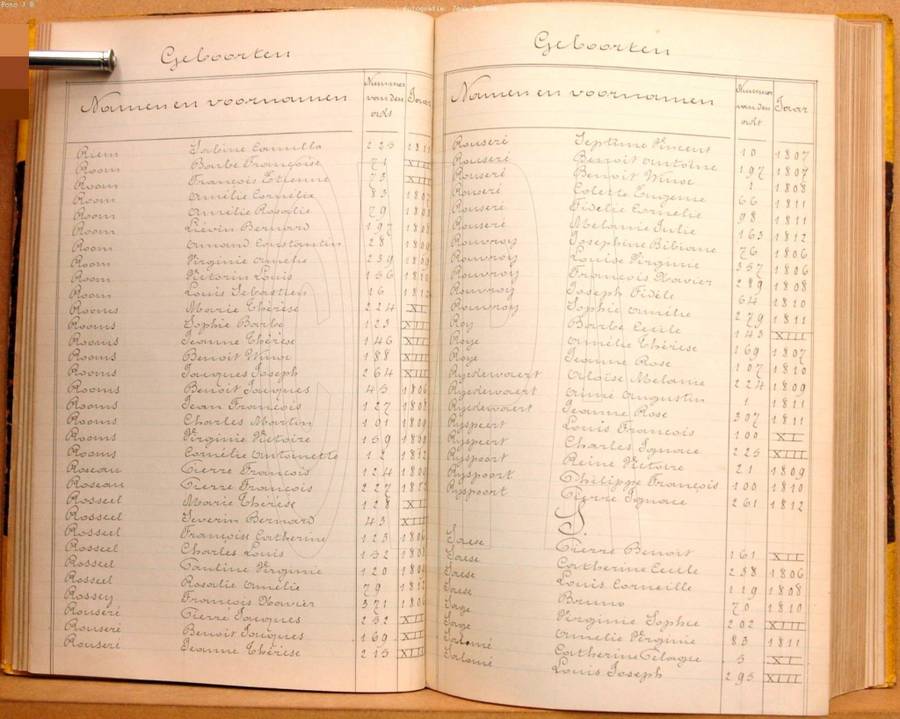 Geboorten
Namen en voornamen Nummer van den acht Jaar
Riem Sabine Camilla 225 1811
Room Barbe Françoise 71 XII
Room François Etienne 73 XII
Room Amélie Cornélie 83 1807
Room Amélie Rosalie 79 1808
Room Liévin Bernard 197 1808
Room Armand Constantin 28 1809
Room Virginie Amélie 239 1809
Room Victorin Louis 156 1810
Room Louis Sebastien 16 1812
Rooms Marie Thérèse 224 XI
Rooms Sophie Barbe 123 XII
Rooms Jeanne Thérèse 146 XII
Rooms Benoit Winoc 188 XII
Rooms Jacques Joseph 264 XIII
Rooms Benoit Jacques 45 1806
Rooms Jean François 127 1808
Rooms Charles Martin 101 1809
Rooms Virginie Victoire 159 1810
Rooms Cornélie Antoinette 12 1812
Roseau Pierre François 124 1809
Roseau Pierre François 227
Rosseel Marie Thérèse 128 XII
Rosseel Severin Bernard 43 XII
Rosseel Françoise Catherine 123 1806
Rosseel Charles Louis 152 1808
Rosseel Pauline Virginie 120 1809
Rosseel Rosalie Amélie 79 1812
Rossey François Xavier 371 1806
Rouseré Pierre Jacques 252 XIII
Rouseré Benoit Jacques 169 XII
Rouseré Jeanne Thérèse 215 XIII
Geboorten
Namen en voornamen Nummer van den acht Jaar
Rouseré Septime Vincent 10 1807
Rouseré Benoit Antoine 197 1807
Rouseré Benoit Winoc 1 1808
Rouseré Colette Eugenie 66 1811
Rouseré Fidelie Cornelie 98 1811
Rouseré Melanie Julie 163 1812
Rouvroij Josephine Bibiane 76 1806
Rouvroij Louise Virginie 357 1806
Rouvroij François Xavier 289 1808
Rouvroij Joseph Fidèle 64 1810
Rouvroij Sophie Amélie 279 1811
Roy Barbe Cecile 143 XIII
Roye Amélie Thérèse 169 1807
Roye Jeanne Rose 107 1810
Ryedewaert Aloïse Melanie 224 1809
Ryedewaert Aimé Augustin 1 1811
Ryedewaert Jeanne Rose 397 1811
Ryspeert Louis François 100 XI
Ryspeert Charles Ignace 225 XIII
Ryspoort Reine Victoire 21 1809
Ryspoort Philippe François 100 1810
Ryspoort Pierre Ignace 261 1812
S.
Saese Pierre Benoit 161 XII
Saese Catherine Cecile 238 1806
Saese Louis Corneille 119 1808
Saese Bruno 70 1810
Sage Virginie Sophie 202 XIII
Sage Amelie Virginie 83 1811
Salomé Catherine Pélagie 5 XI
Salomé Louis Joseph 295 XIII